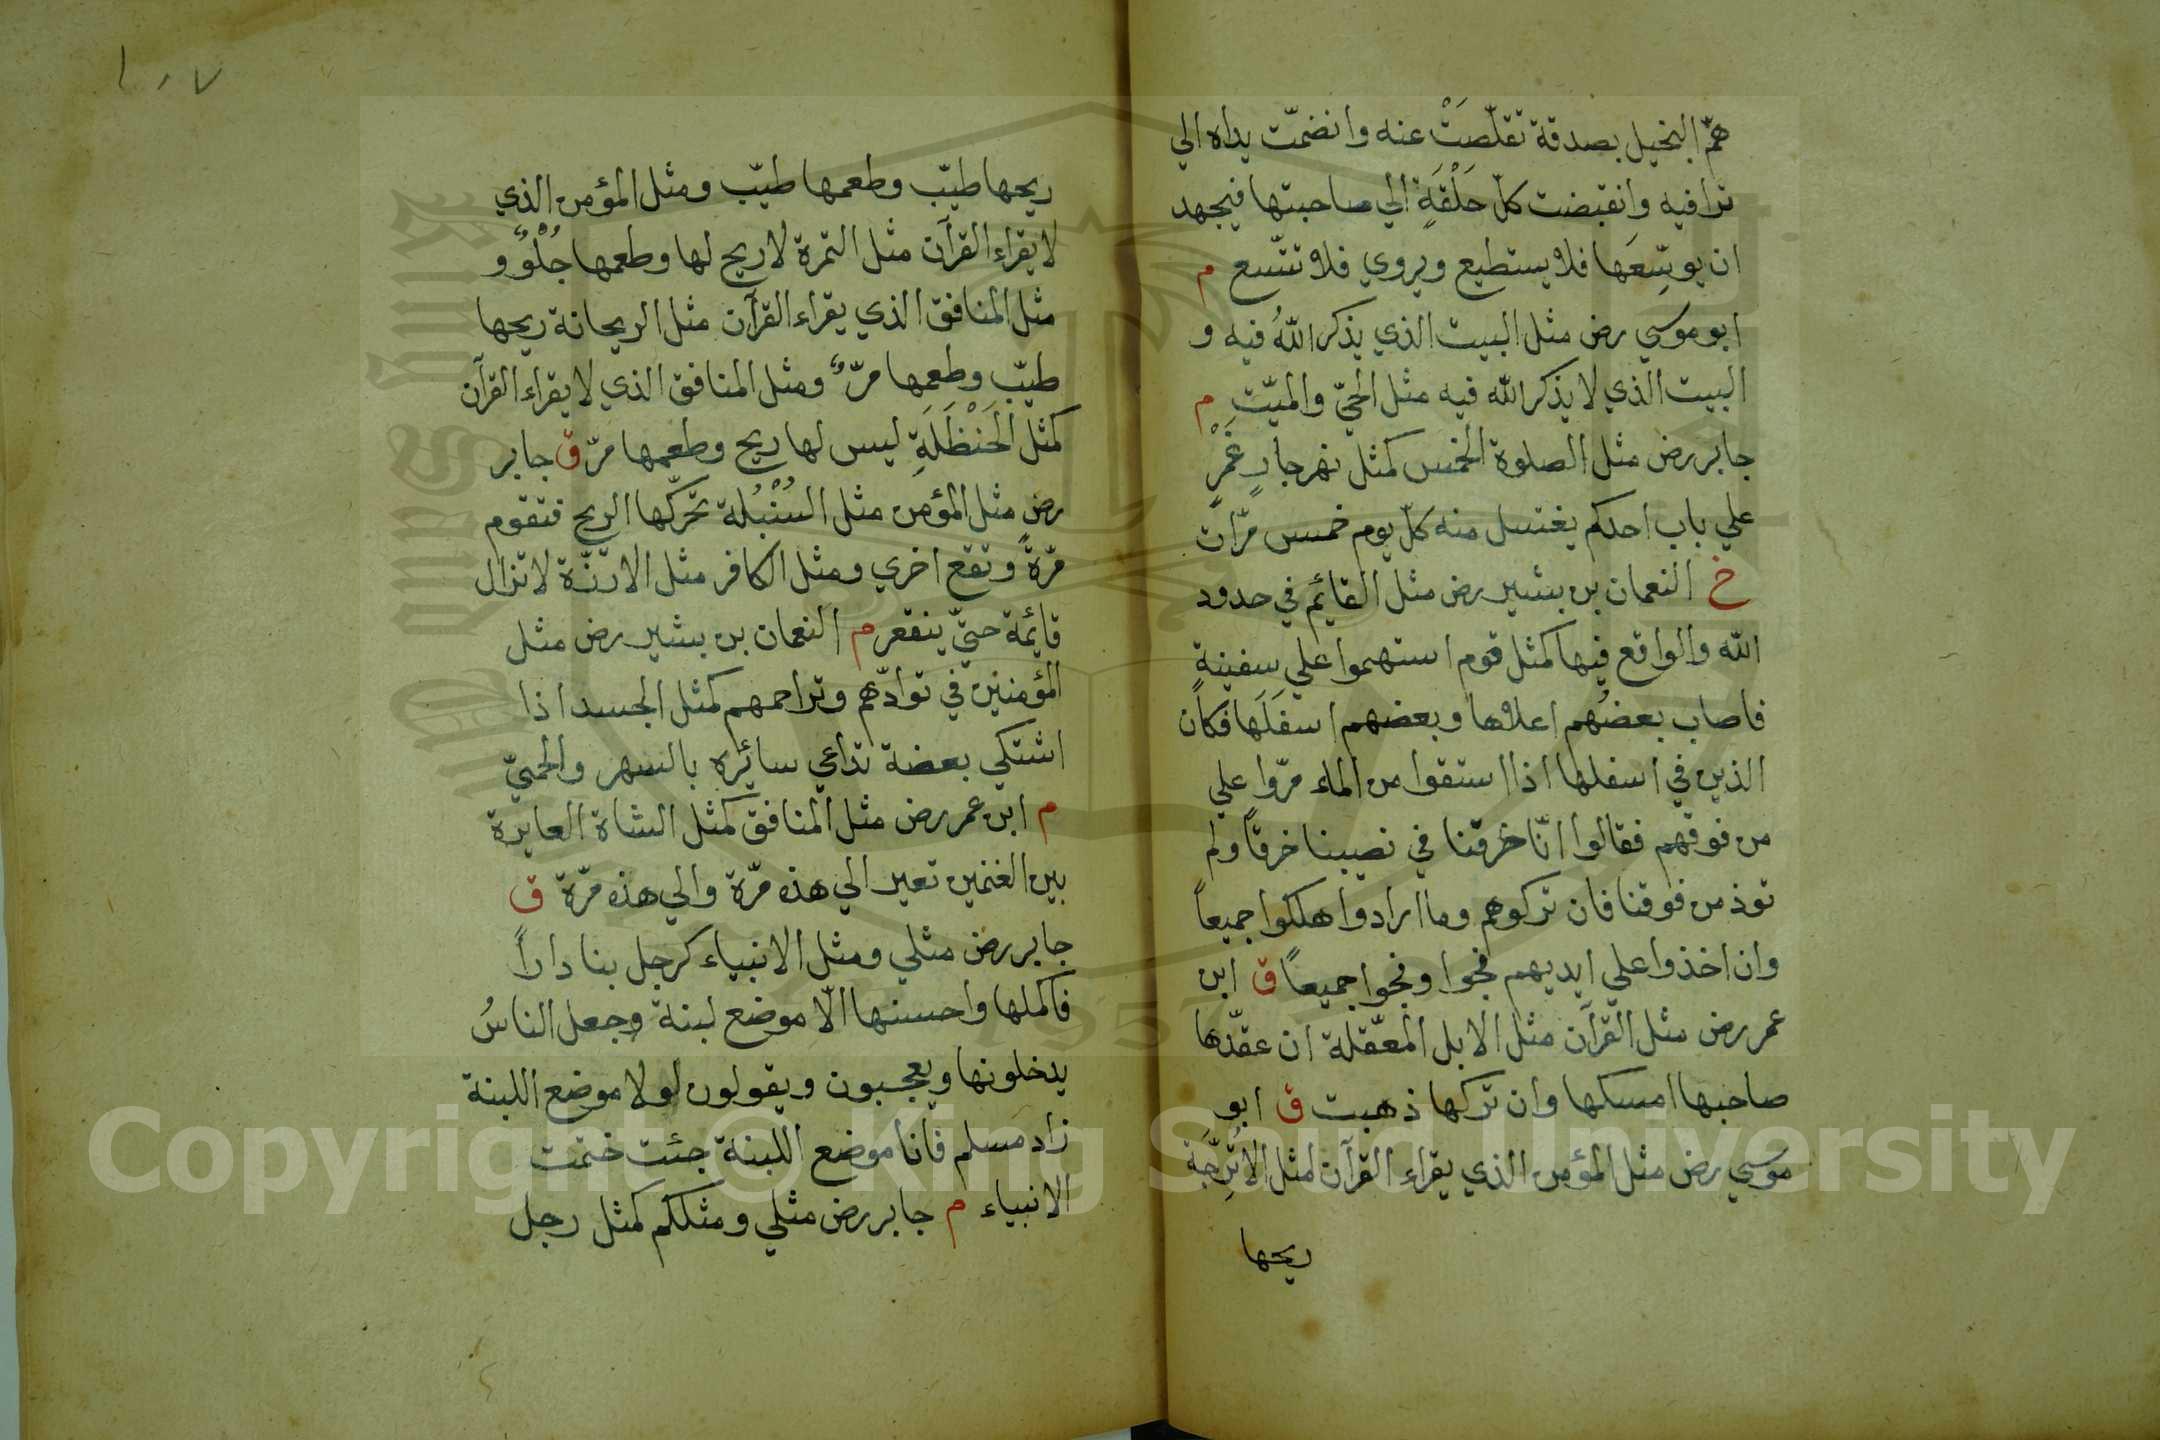 همّ البخيل بصدقة تقلّصَتْ عنه وانضمّت يداه الي
تراقيه وانقبضت كلّ حَلْقَةٍ الي صاحبتها فيجهد
ان يوسّعَها فلا يستطيع ويروي فلا تتّسع م
ابو موسي رض مثل البيت الذي يذكر اللهُ فيه و
البيت الذي لا يذكر الله فيه مثل الحيّ والميّتِ م
جابر رض مثل الصلوة الخمس كمثل نهر جارٍ غَمْرٍ
علي باب احدكم يغتسل منه كلّ يوم خمس مرّات
خ النعمان بن بشير رض مثل القائم في حدود
الله والواقع فيها كمثل قوم استهموا علي سفينةٍ
فاصاب بعضُهم اعلاها وبعضهم اسفَلَها فكان
الذين في اسفلها اذا استقوا من الماء مرّوا علي
من فوقهم فقالوا انّا خرقنا في نصيبنا خرقاً ولم
نوذ من فوقنا فان تركوهم وما ارادوا هلكوا جميعاً
وان اخذوا علي ايديهم نجوا ونجوا جميعاً ق ابن
عمر رض مثل القرآن مثل الابل المعقّلة ان عقّدها
صاحبها امسكها وان تركها ذهبت ق ابو
موسي رض مثل المؤمن الذي يقراء القرآن مثل الاُتْرُجّة
ريحها
١٠٧
ريحها طيّب وطعمها طيّب ومثل المؤمن الذي
لا يقراء القرآن مثل التمرة لا ريح لها وطعمها حُلْوٌ و
مثل المنافق الذي يقراء القرآن مثل الريحانة ريحها
طيّب وطعمها مرّ ومثل المنافق الذي لا يقراء القرآن
كمثل الحَنْظَلَةِ ليس لها ريح وطعمها مرّ ق جابر
رض مثل المؤمن مثل السُنْبُلة تحرّكها الريح فتقوم
مرّةً وتقع اخري ومثل الكافر مثل الارزّة لا تزال
قائمة حتيّ ينقعر م النعمان بن بشير رض مثل
المؤمنين في توادّهم وتراحمهم كمثل الجسد اذا
اشتكي بعضة تداعي سائره بالسهر والحميّ
م ابن عمر رض مثل المنافق كمثل الشاة العايرة
بين الغنمين تعير الي هذه مرّة والي هذه مرّة ق
جابر رض مثلي ومثل الانبياء كرجل بنا داراً
فاكملها واحسنها الّا موضع لبنة وجعل الناسُ
يدخلونها ويعجبون ويقولون لولا موضع اللبنة
زاد مسلم فانا موضع اللبنة جئت ختمت
الانبياء م جابر رض مثلي ومثلكم كمثل رجل
Copyright © King Saud University